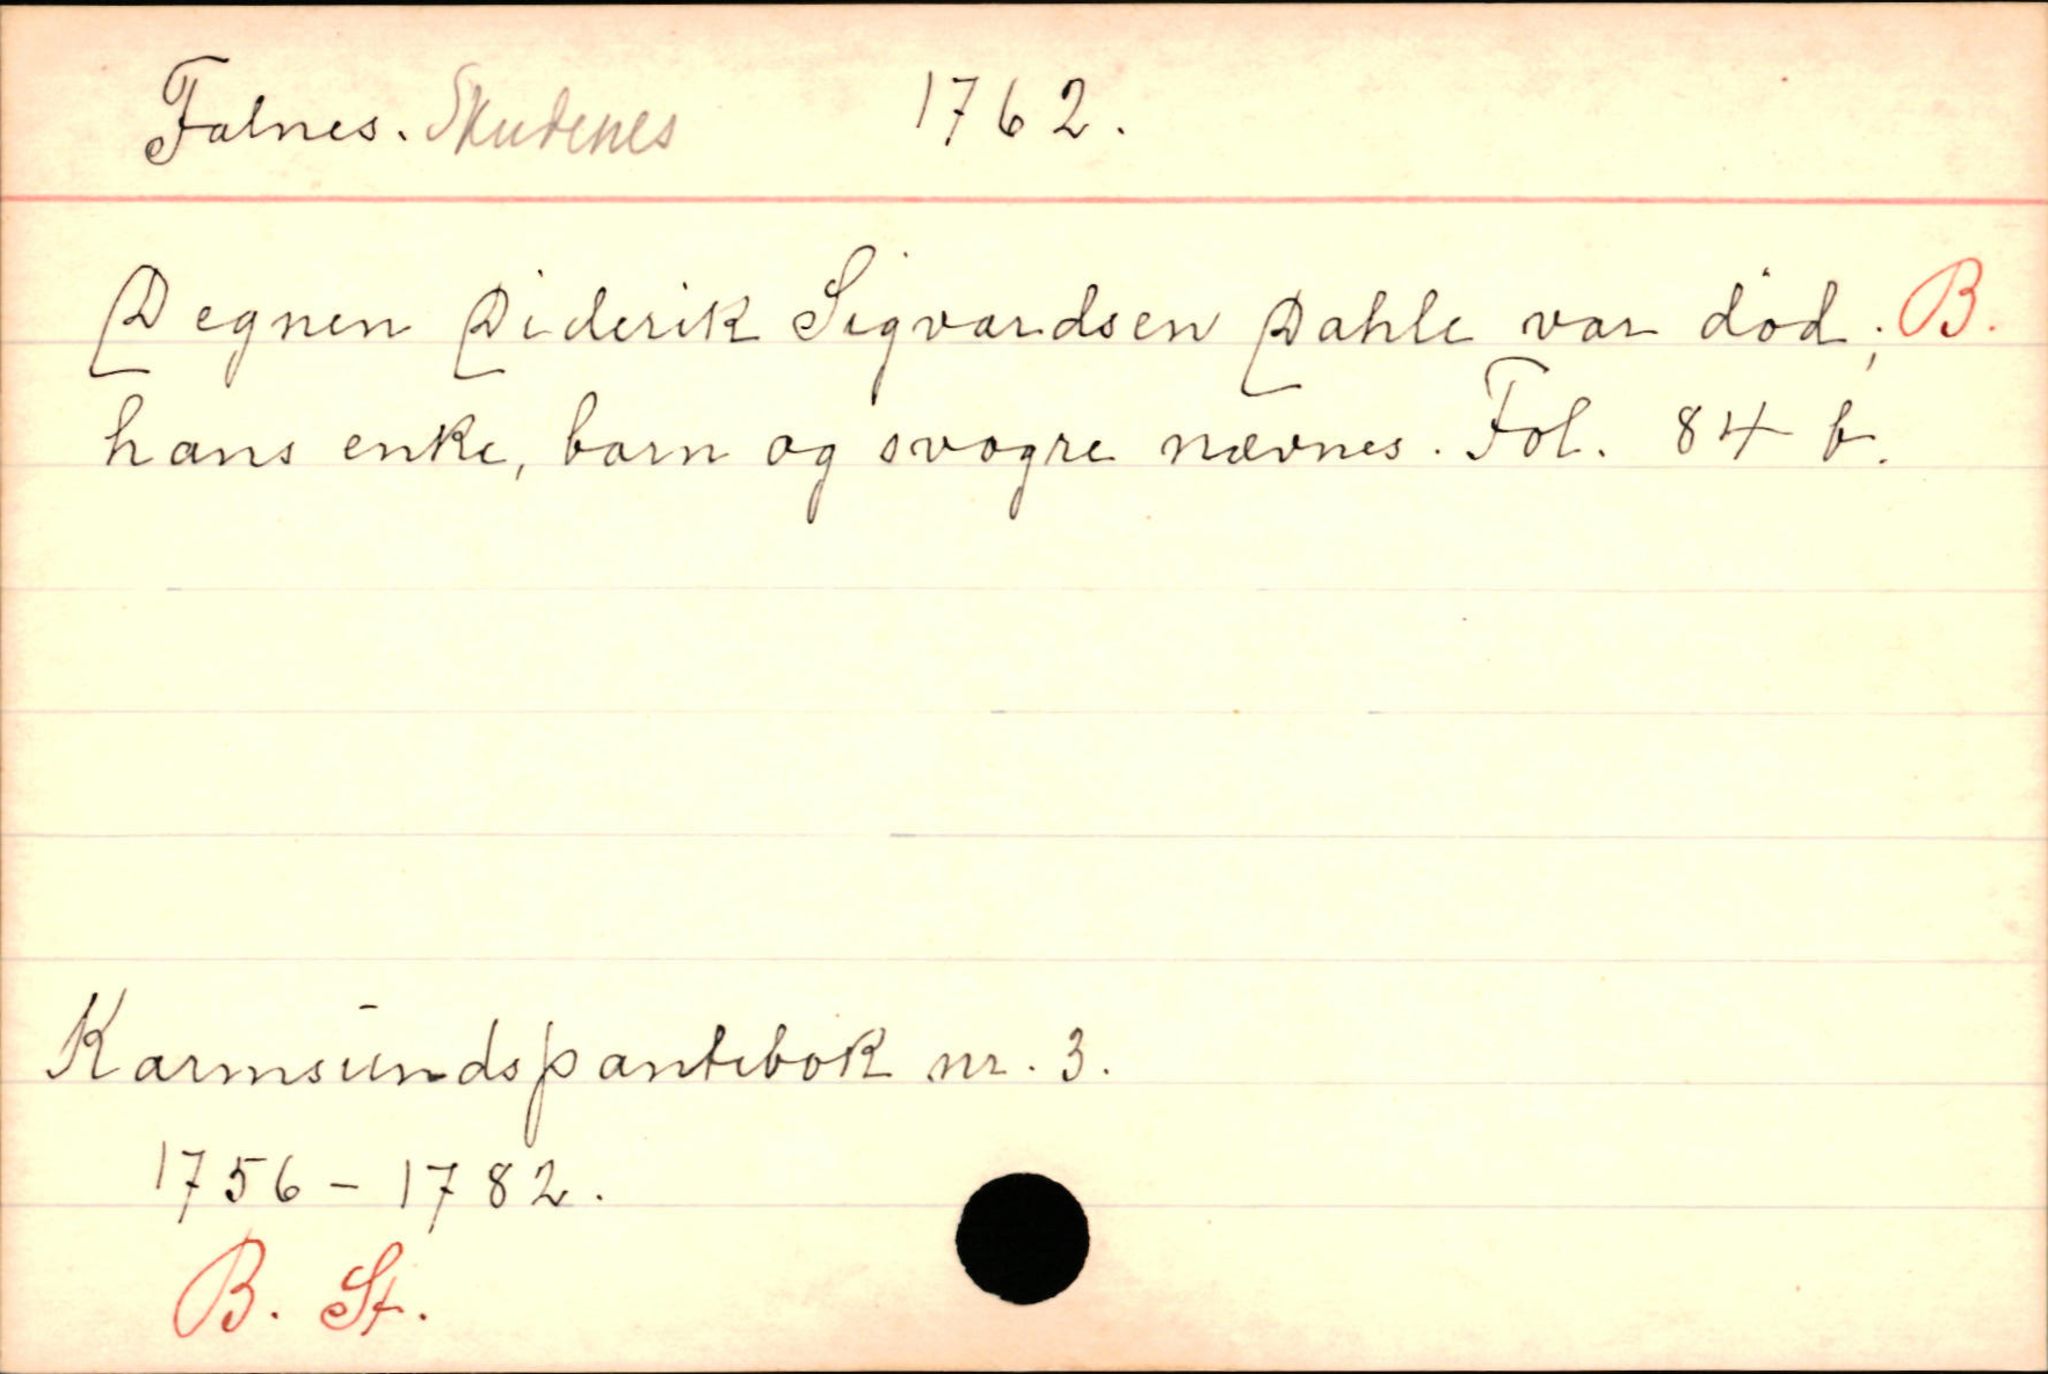 Falnes. Skudenes 1762.
Degnen Diderik Sigvardsen Dahle var död; B.
hans enke, barn og svogre nævnes. Fol. 84 b.
Karmsundspantebok nr. 3.
1756 - 1782.
B. St.